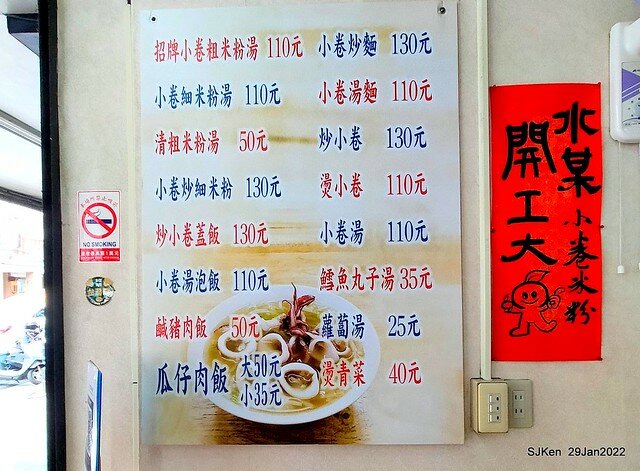 招牌小卷粗米粉湯 110元
小卷細米粉湯 110元
清粗米粉湯 50元
小卷炒細米粉 130元
炒小卷蓋飯 130元
小卷湯泡飯 110元
鹹豬肉飯 50元
瓜仔肉飯 大50元
小35元
小卷炒麵 130元
小卷湯麵 110元
炒小卷 130元
燙小卷 110元
小卷湯 110元
鱈魚丸子湯 35元
蘿蔔湯 25元
燙青菜 40元
NO SMOKING
水某
小卷米粉
開工大
SJKen 29Jan2022